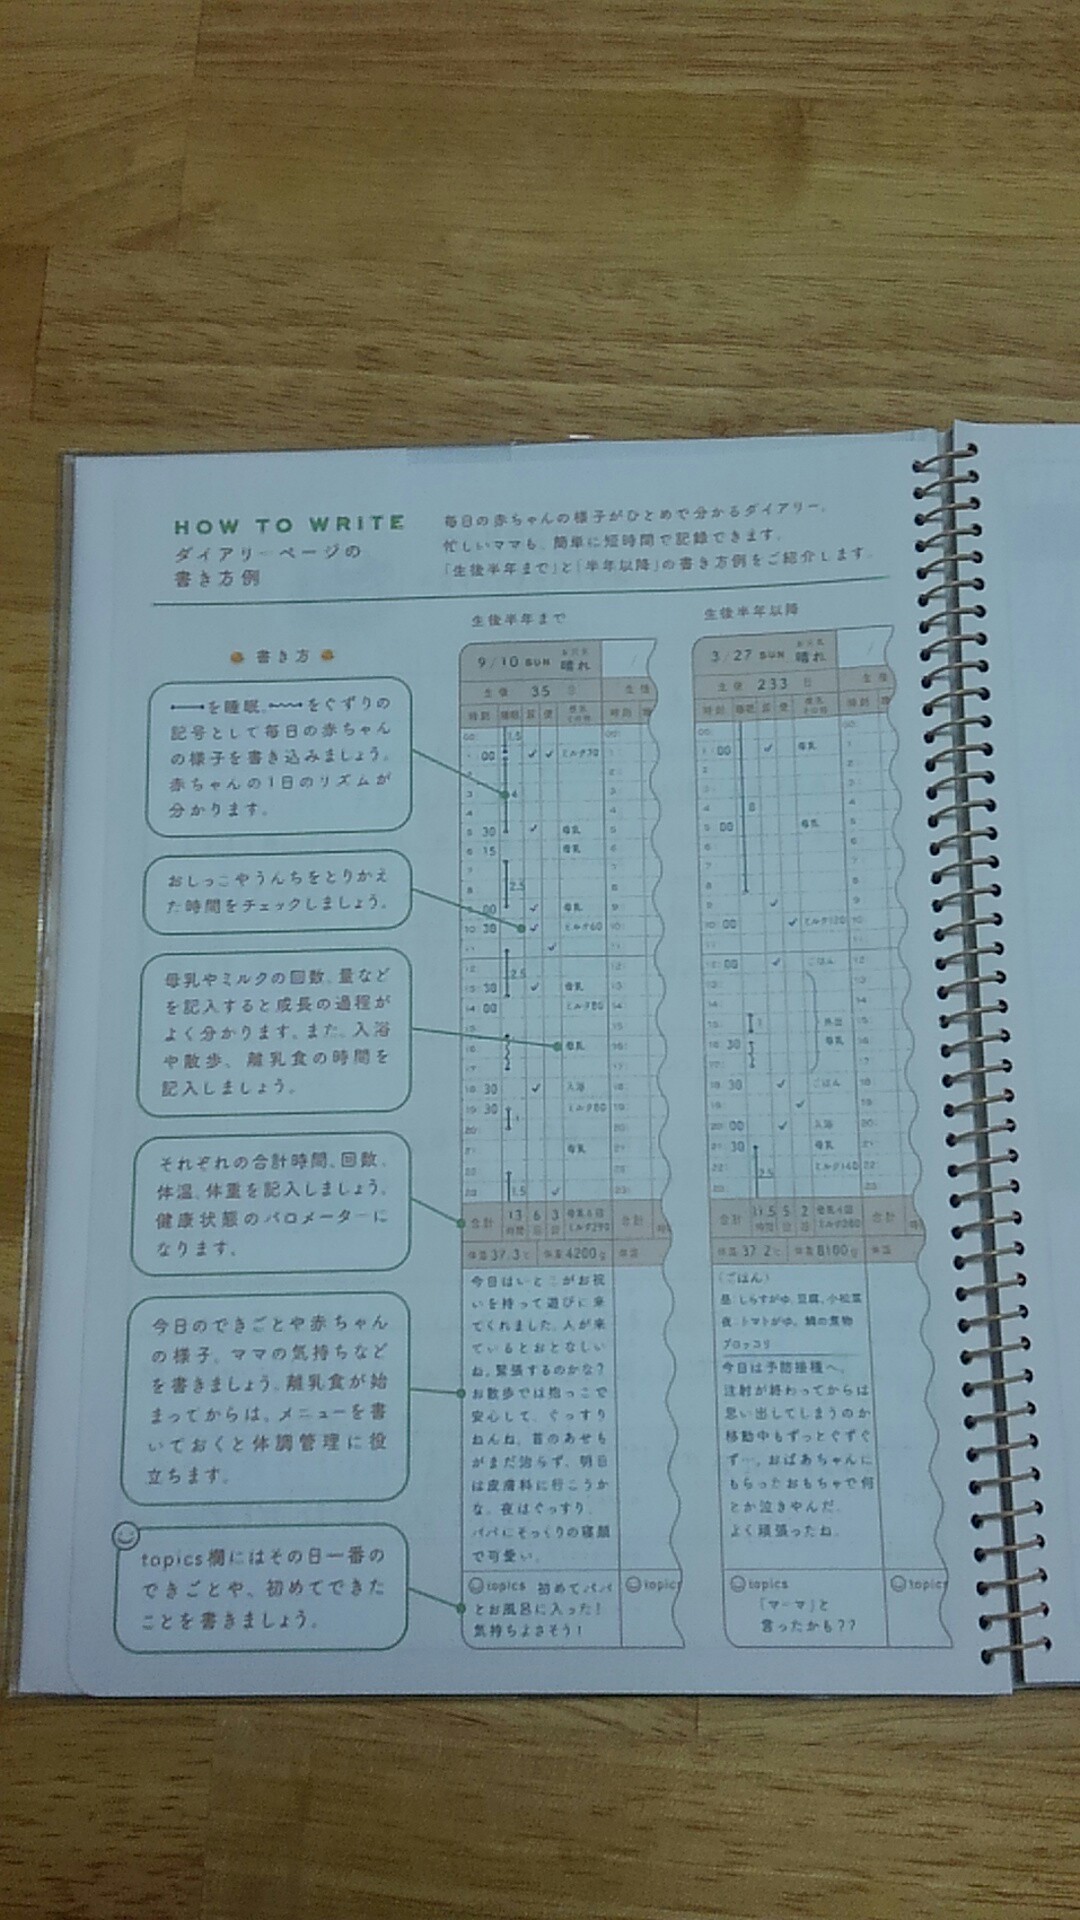 HOW TO WRITE
ダイアリーページの
書き方例
毎日の赤ちゃんの様子がひとめで分かるダイアリー。
忙しいママも、簡単に短時間で記録できます。
「生後半年まで」と「半年以降」の書き方例をご紹介します。
書き方
を睡眠、をぐずりの
記号として毎日の赤ちゃん
の様子を書き込みましょう。
赤ちゃんの1日のリズムが
分かります。
おしっこやうんちをとりかえ
た時間をチェックしましょう。
母乳やミルクの回数、量など
を記入すると成長の過程が
よく分かります。また、入浴
や散歩、離乳食の時間を
記入しましょう。
それぞれの合計時間、回数、
体温、体重を記入しましょう。
健康状態のバロメーターに
なります。
今日のできごとや赤ちゃん
の様子、ママの気持ちなど
を書きましょう。離乳食が始
まってからは、メニューを書
いておくと体調管理に役
立ちます。
topics欄にはその日一番の
できごとや、初めてできた
ことを書きましょう。
生後半年まで
9/10 SUN 晴れ
生後 35 日
時刻 睡眠 尿 便
00 1.5
1 00 ✓ ✓ ミルク70
2
3 4
4
5 30 ✓ 母乳
6 15 母乳
7
8 2.5
9 00 ✓ 母乳
10 30 ✓ ミルク60
11 ✓
12 2.5
13 30 ✓ 母乳
14 00 ミルク80
15
16 母乳
17
18 30 ✓ 入浴
19 30 ミルク80
20 1
21 母乳
22
23 1.5 ✓
合計 13時間 6回 3回 母乳6回 ミルク290
体温 37.3℃ 体重 4200g
今日はいとこがお祝
いを持って遊びに来
てくれました。人が来
ているとおとなしい
ね。緊張するのかな？
お散歩では抱っこで
安心して、ぐっすり
ねんね。首のあせも
がまだ治らず、明日
は皮膚科に行こうか
な。夜はぐっすり。
パパにそっくりの寝顔
で可愛い。
topics 初めてパパ
とお風呂に入った！
気持ちよさそう！
生後半年以降
3/27 SUN 晴れ
生後 233 日
時刻 睡眠 尿 便
00
1 00 ✓ 母乳
2
3
4 8
5 00 母乳
6
7
8
9 ✓
10 00 ✓ ミルク120
11
12 00 ✓ ごはん
13
14
15 1 外出
16 30 母乳
17
18 30 ✓ ごはん
19 ✓
20 00 ✓ 入浴
21 30 母乳
22 2.5 ミルク160
23
合計 11.5時間 5回 2回 母乳4回
体温 37.2℃ 体重 8100g
〈ごはん〉
昼：しらすがゆ、豆腐、小松菜
夜：トマトがゆ、鯛の煮物
ブロッコリ
今日は予防接種へ。
注射が終わってからは
思い出してしまうのか
移動中もずっとぐずぐ
ず…。おばあちゃんに
もらったおもちゃで何
とか泣きやんだ。
よく頑張ったね。
topics
「マーマ」と
言ったかも？？
topics